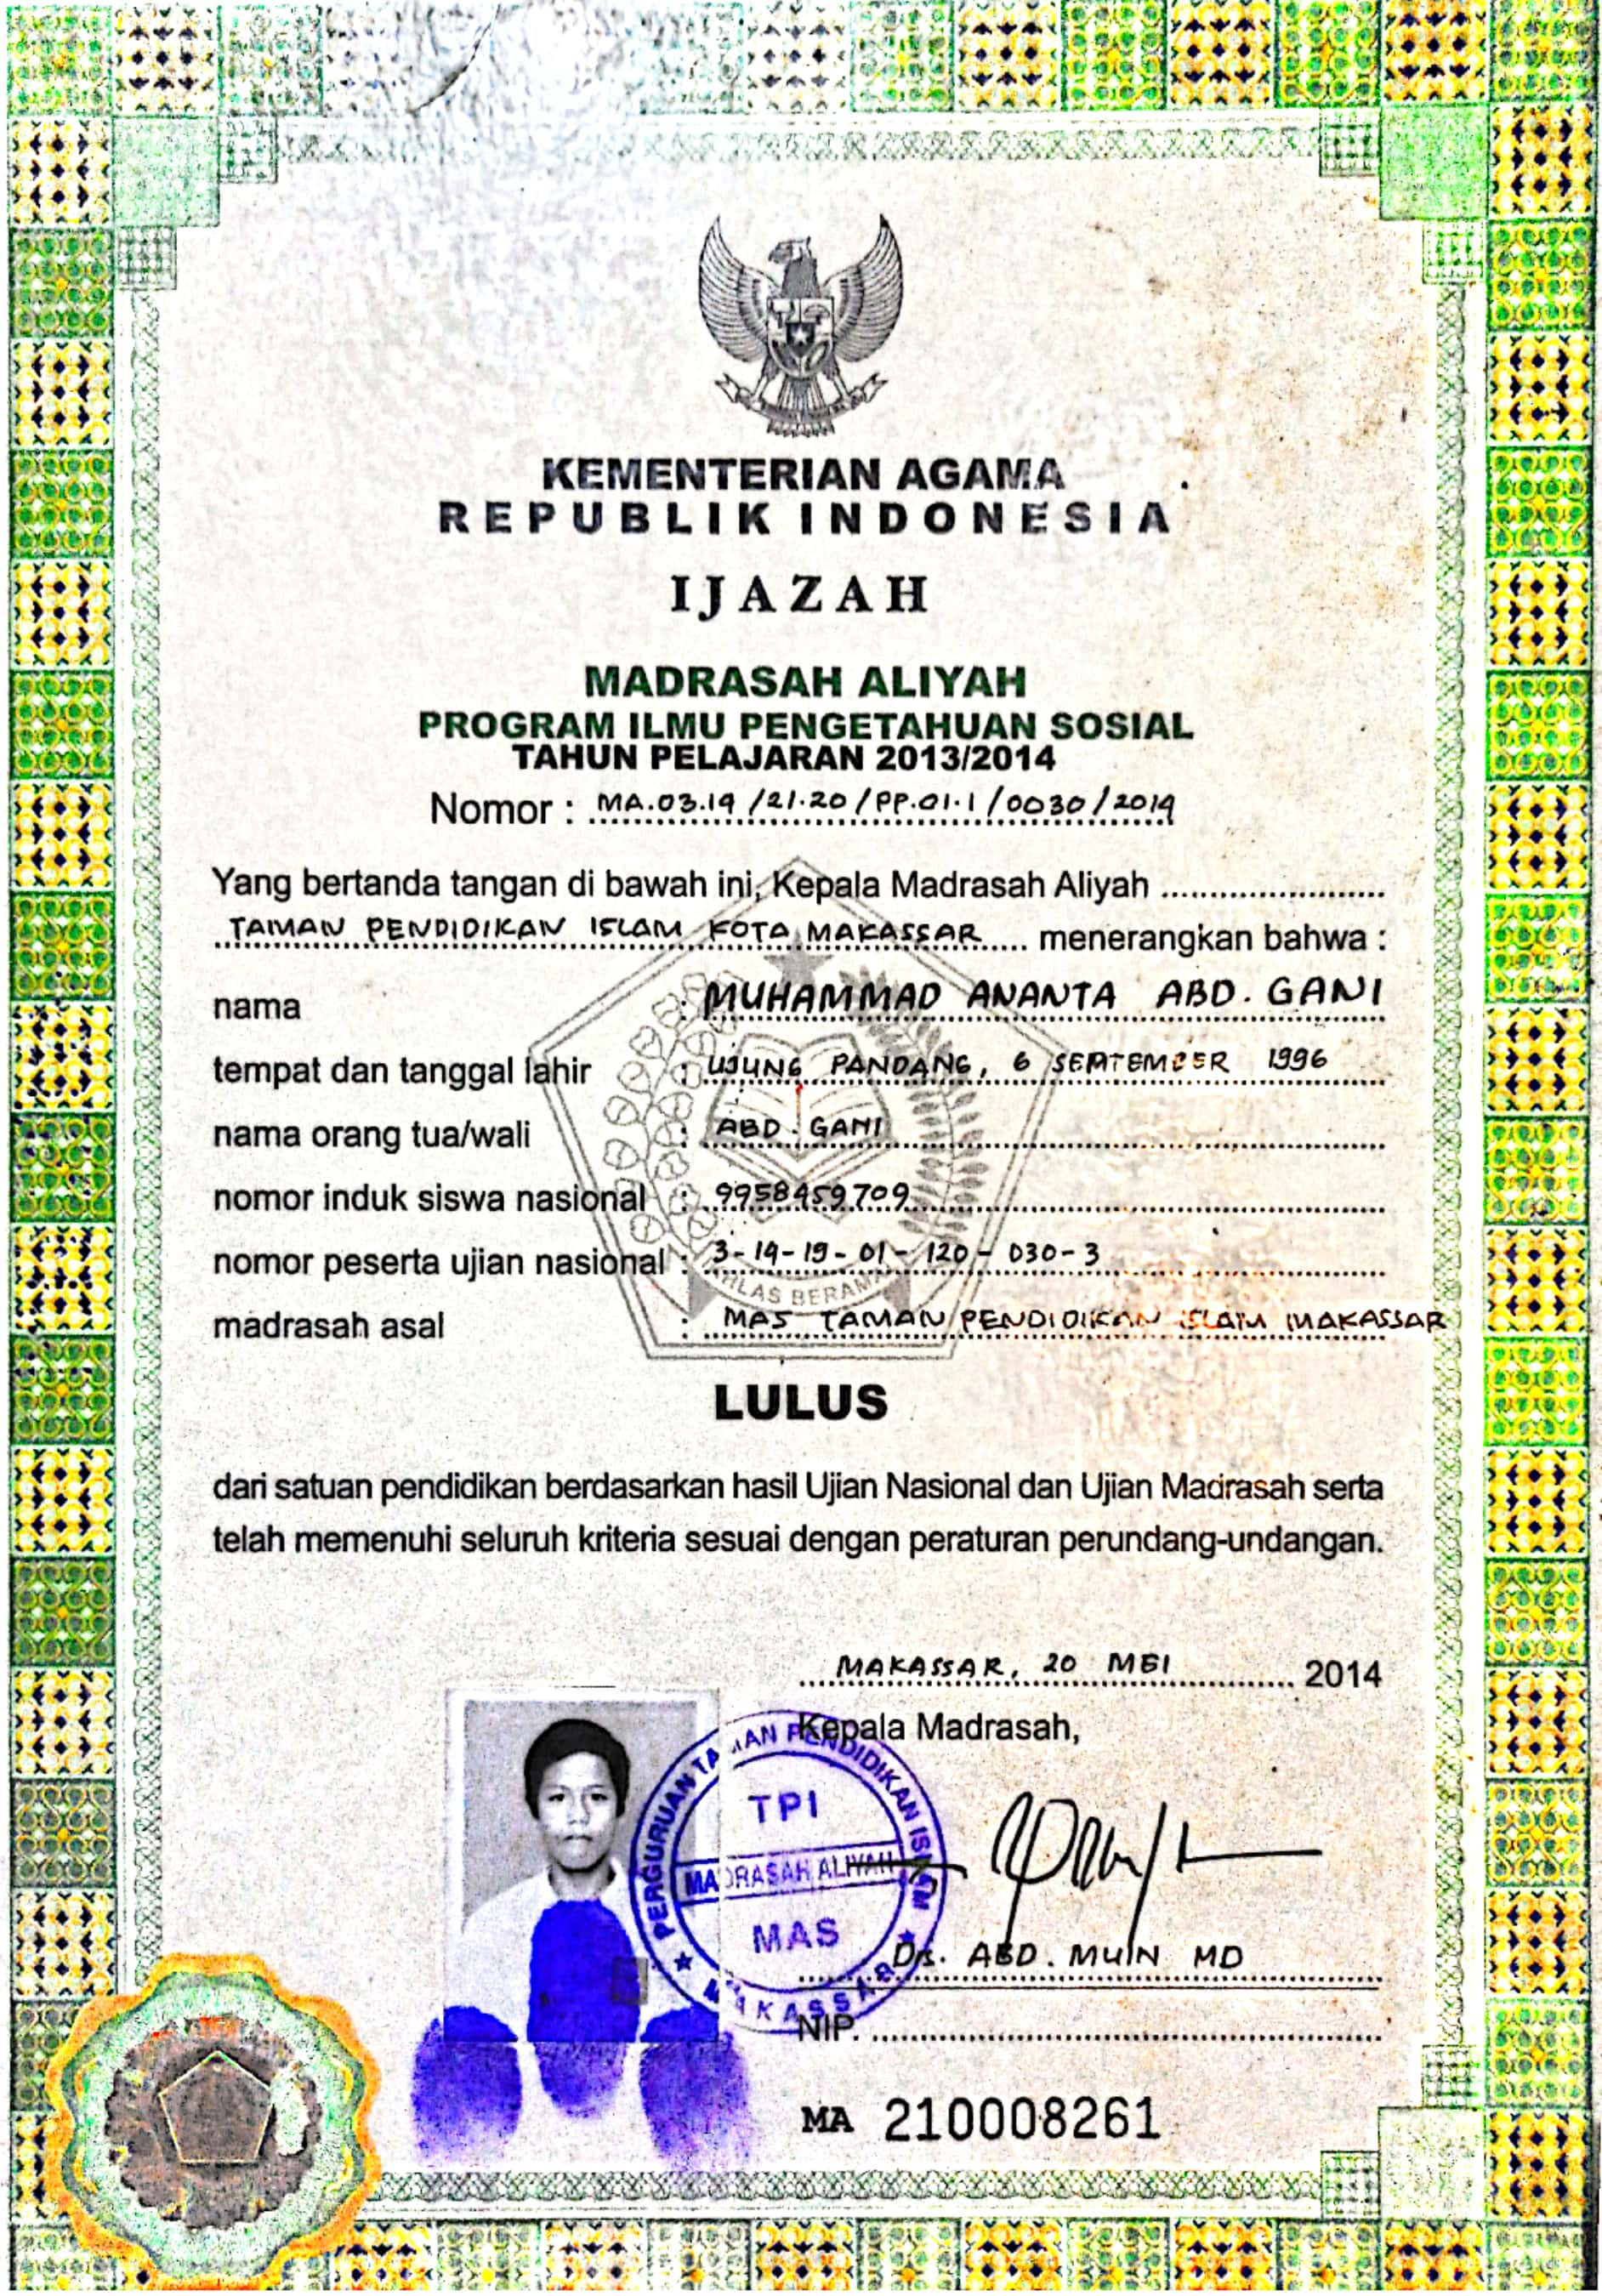 KEMENTERIAN AGAMA
REPUBLIK INDONESIA
IJAZAH
MADRASAH ALIYAH
PROGRAM ILMU PENGETAHUAN SOSIAL
TAHUN PELAJARAN 2013/2014
Nomor : MA.03.19/21.20/PP.01.1/0030/2014
Yang bertanda tangan di bawah ini, Kepala Madrasah Aliyah
TAMAN PENDIDIKAN ISLAM KOTA MAKASSAR menerangkan bahwa :
nama : MUHAMMAD ANANTA ABD. GANI
tempat dan tanggal lahir : UJUNG PANDANG, 6 SEPTEMBER 1996
nama orang tua/wali : ABD. GANI
nomor induk siswa nasional : 9958459709
nomor peserta ujian nasional : 3-14-19-01-120-030-3
IKHLAS BERAMAL
madrasah asal : MAS TAMAN PENDIDIKAN ISLAM MAKASSAR
LULUS
dari satuan pendidikan berdasarkan hasil Ujian Nasional dan Ujian Madrasah serta
telah memenuhi seluruh kriteria sesuai dengan peraturan perundang-undangan.
MAKASSAR, 20 MEI 2014
Kepala Madrasah,
PERGURUAN TAMAN PENDIDIKAN ISLAM
TPI
MADRASAH ALIYAH
MAS
MAKASSAR
Drs. ABD. MUIN MD
NIP.
MA 210008261